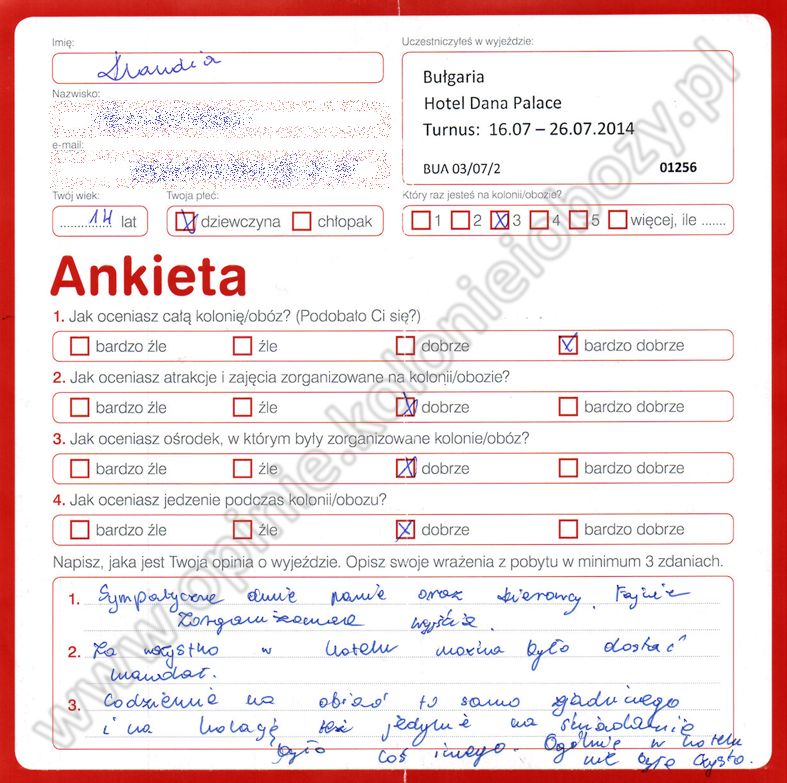 Imię:
Uczestniczyłeś w wyjeździe:
Bułgaria
Nazwisko:
Hotel Dana Palace
Turnus: 16.07 – 26.07.2014
e-mail:
BUA 03/07/2 01256
Twój wiek: Twoja płeć: Który raz jesteś na kolonii/obozie?
14 lat dziewczyna chłopak 1 2 3 4 5 więcej, ile .......
Ankieta
1. Jak oceniasz całą kolonię/obóz? (Podobało Ci się?)
bardzo źle źle dobrze bardzo dobrze
2. Jak oceniasz atrakcje i zajęcia zorganizowane na kolonii/obozie?
bardzo źle źle dobrze bardzo dobrze
3. Jak oceniasz ośrodek, w którym były zorganizowane kolonie/obóz?
bardzo źle źle dobrze bardzo dobrze
4. Jak oceniasz jedzenie podczas kolonii/obozu?
bardzo źle źle dobrze bardzo dobrze
Napisz, jaka jest Twoja opinia o wyjeździe. Opisz swoje wrażenia z pobytu w minimum 3 zdaniach.
1. Sympatyczne dwie panie oraz kierowcy. Fajnie
zorganizowane wyjście.
2. Za wszystko w hotelu można było dostać
mandat.
3. Codziennie na obiad to samo żadnego
i na kolację też jedynie na śniadanie
było coś innego. Ogólnie w hotelu
nie było czysto.
www.opinie.kolonieiobozy.pl